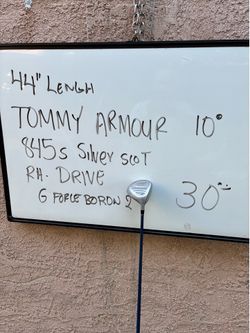 44" LENGH
TOMMY ARMOUR 10°
845s Silver SCOT
RH. DRIVE
G FORCE BORON 2 30